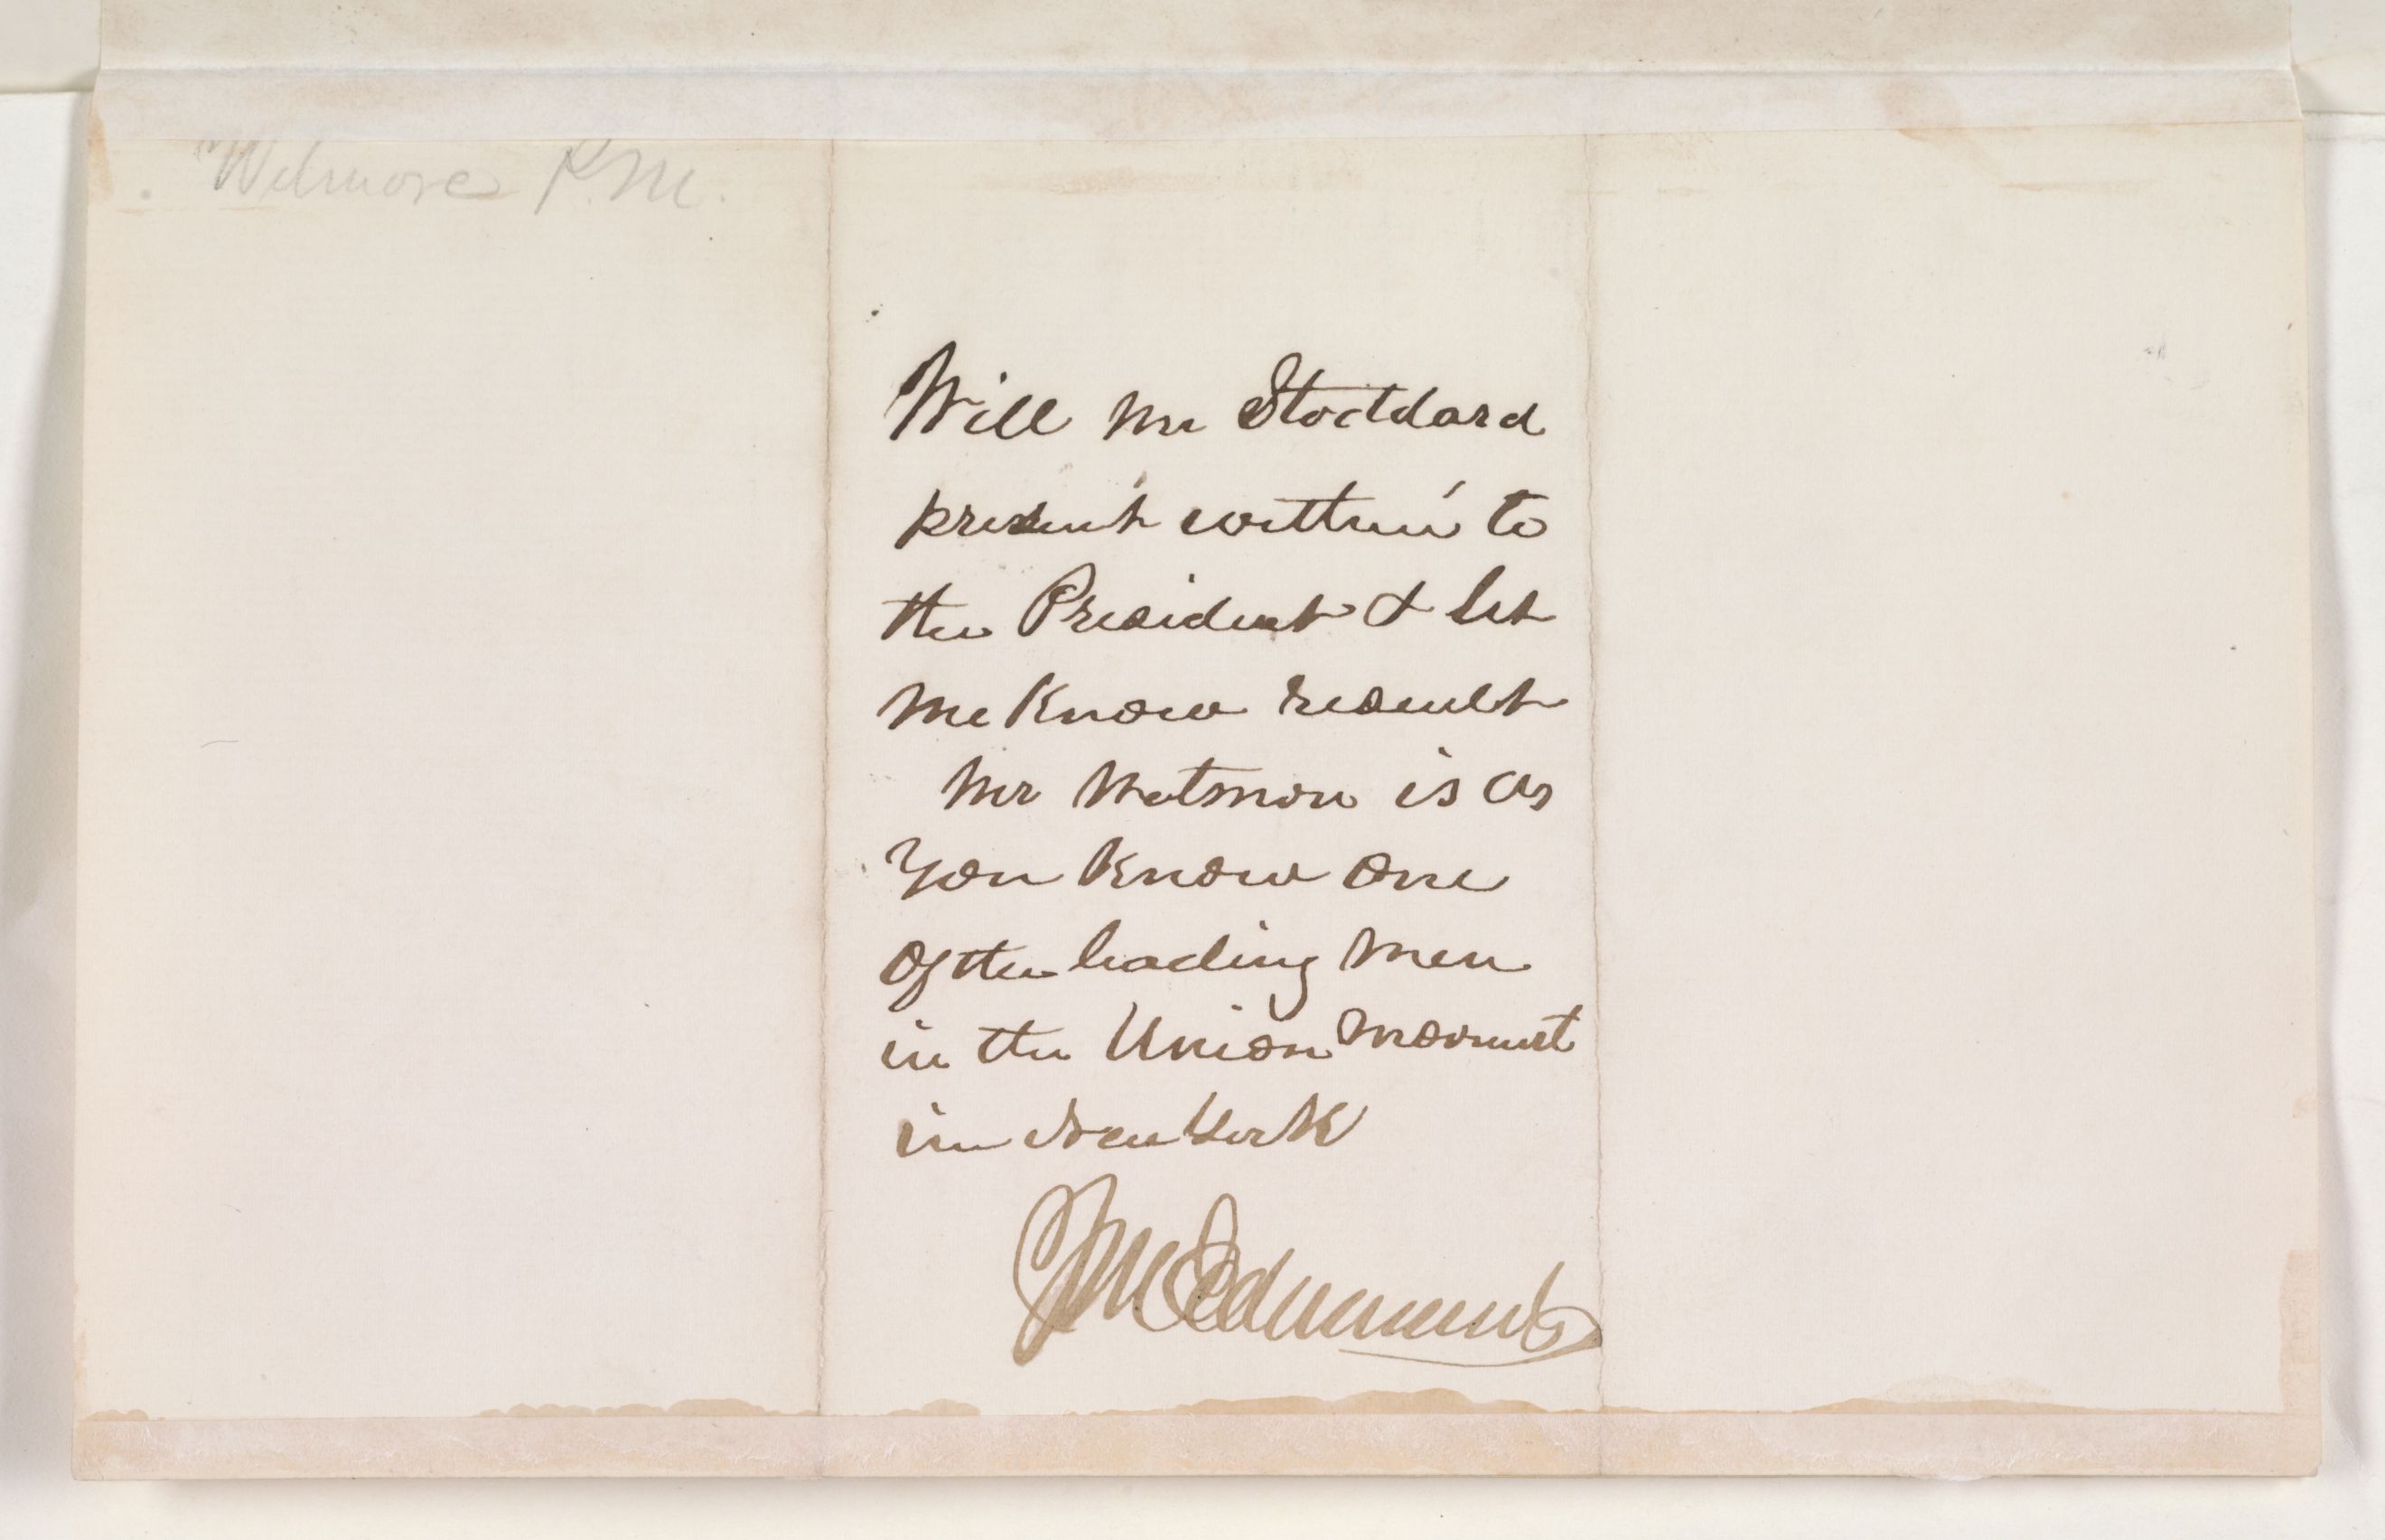 Wetmore P.M.
Will Mr Stoddard
present within to
the President & let
me Know result
Mr Wetmore is as
You Know one
of the leading men
in the Union movement
in New York
JM Edmunds